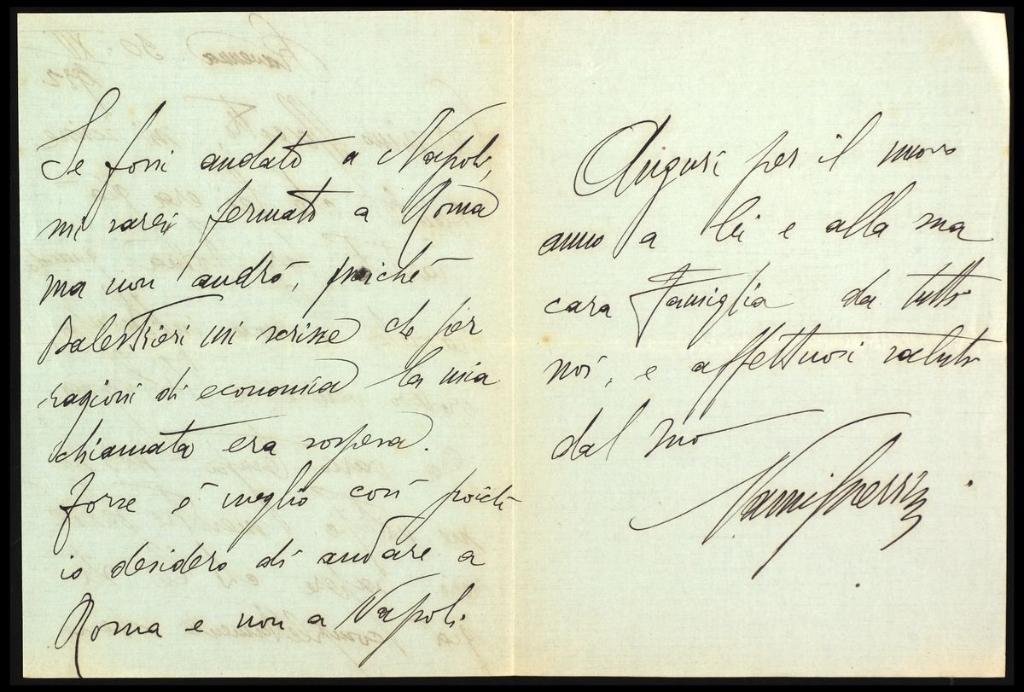 Se fossi andato a Napoli,
mi sarei fermato a Roma
ma non andrò, poiché
Balestrieri mi scrisse che per
ragioni di economia la mia
chiamata era sospesa.
Forse é meglio così poiché
io desidero di andare a
Roma e non a Napoli.
Auguri per il nuovo
anno a lei e alla sua
cara Famiglia da tutti
noi, e affettuosi saluti
dal suo